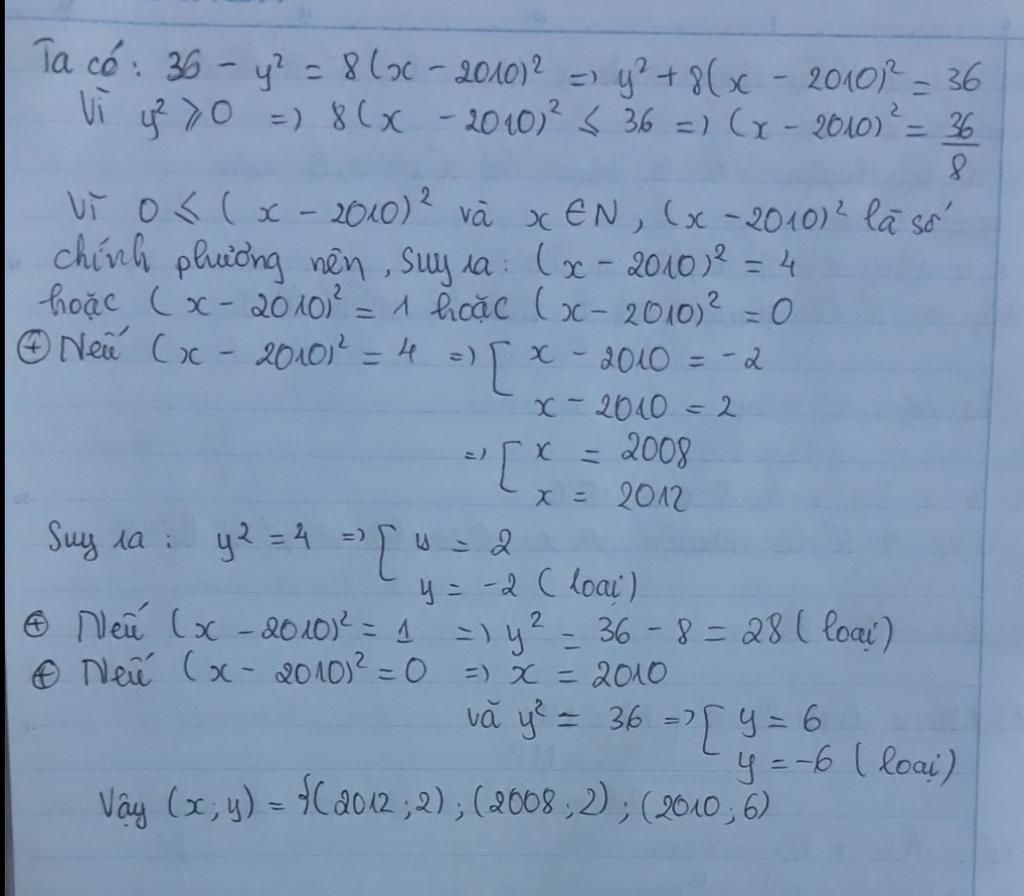 Ta có: 36 - y² = 8(x - 2010)² => y² + 8(x - 2010)² = 36
Vì y² ⩾ 0 => 8(x - 2010)² ⩽ 36 => (x - 2010)² = 36/8
Vì 0 ⩽ (x - 2010)² và x ∈ N, (x - 2010)² là số
chính phương nên, Suy ra: (x - 2010)² = 4
hoặc (x - 2010)² = 1 hoặc (x - 2010)² = 0
⊕ Nếu (x - 2010)² = 4 => [ x - 2010 = -2
x - 2010 = 2
=> [ x = 2008
x = 2012
Suy ra: y² = 4 => [ y = 2
y = -2 (loại)
⊕ Nếu (x - 2010)² = 1 => y² = 36 - 8 = 28 (loại)
⊕ Nếu (x - 2010)² = 0 => x = 2010
và y² = 36 => [ y = 6
y = -6 (loại)
Vậy (x; y) = {(2012; 2); (2008; 2); (2010; 6)